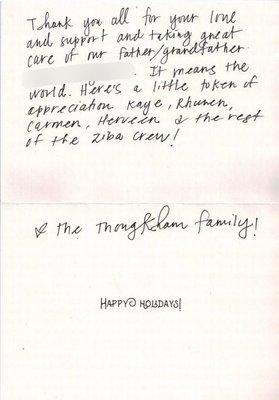 Thank you all for your love
and support and taking great
care of our father/grandfather
. It means the
world. Here's a little token of
appreciation Kaye, Rhunen,
Carmen, Herveen & the rest
of the Ziba Crew!
the Thongkham family!
HAPPY HOLIDAYS!